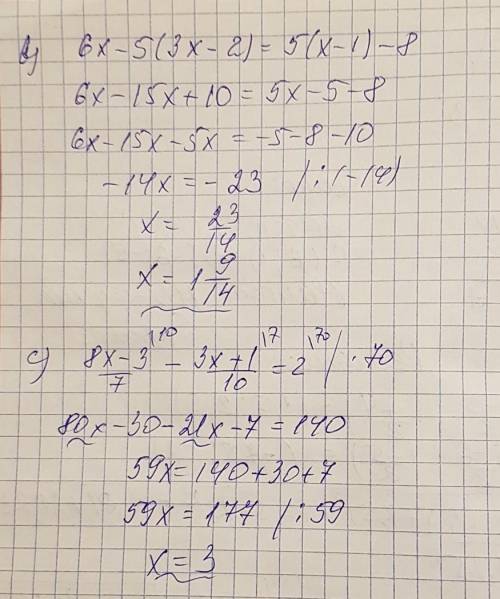 b) 6x-5(3x-2)=5(x-1)-8
6x-15x+10=5x-5-8
6x-15x-5x=-5-8-10
-14x=-23 /:(-14)
x= 23/14
x= 1 9/14
c) (8x-3)/7 \10 - (3x+1)/10 \7 = 2 \70 / ·70
80x-30-21x-7=140
59x=140+30+7
59x=177 /:59
x=3